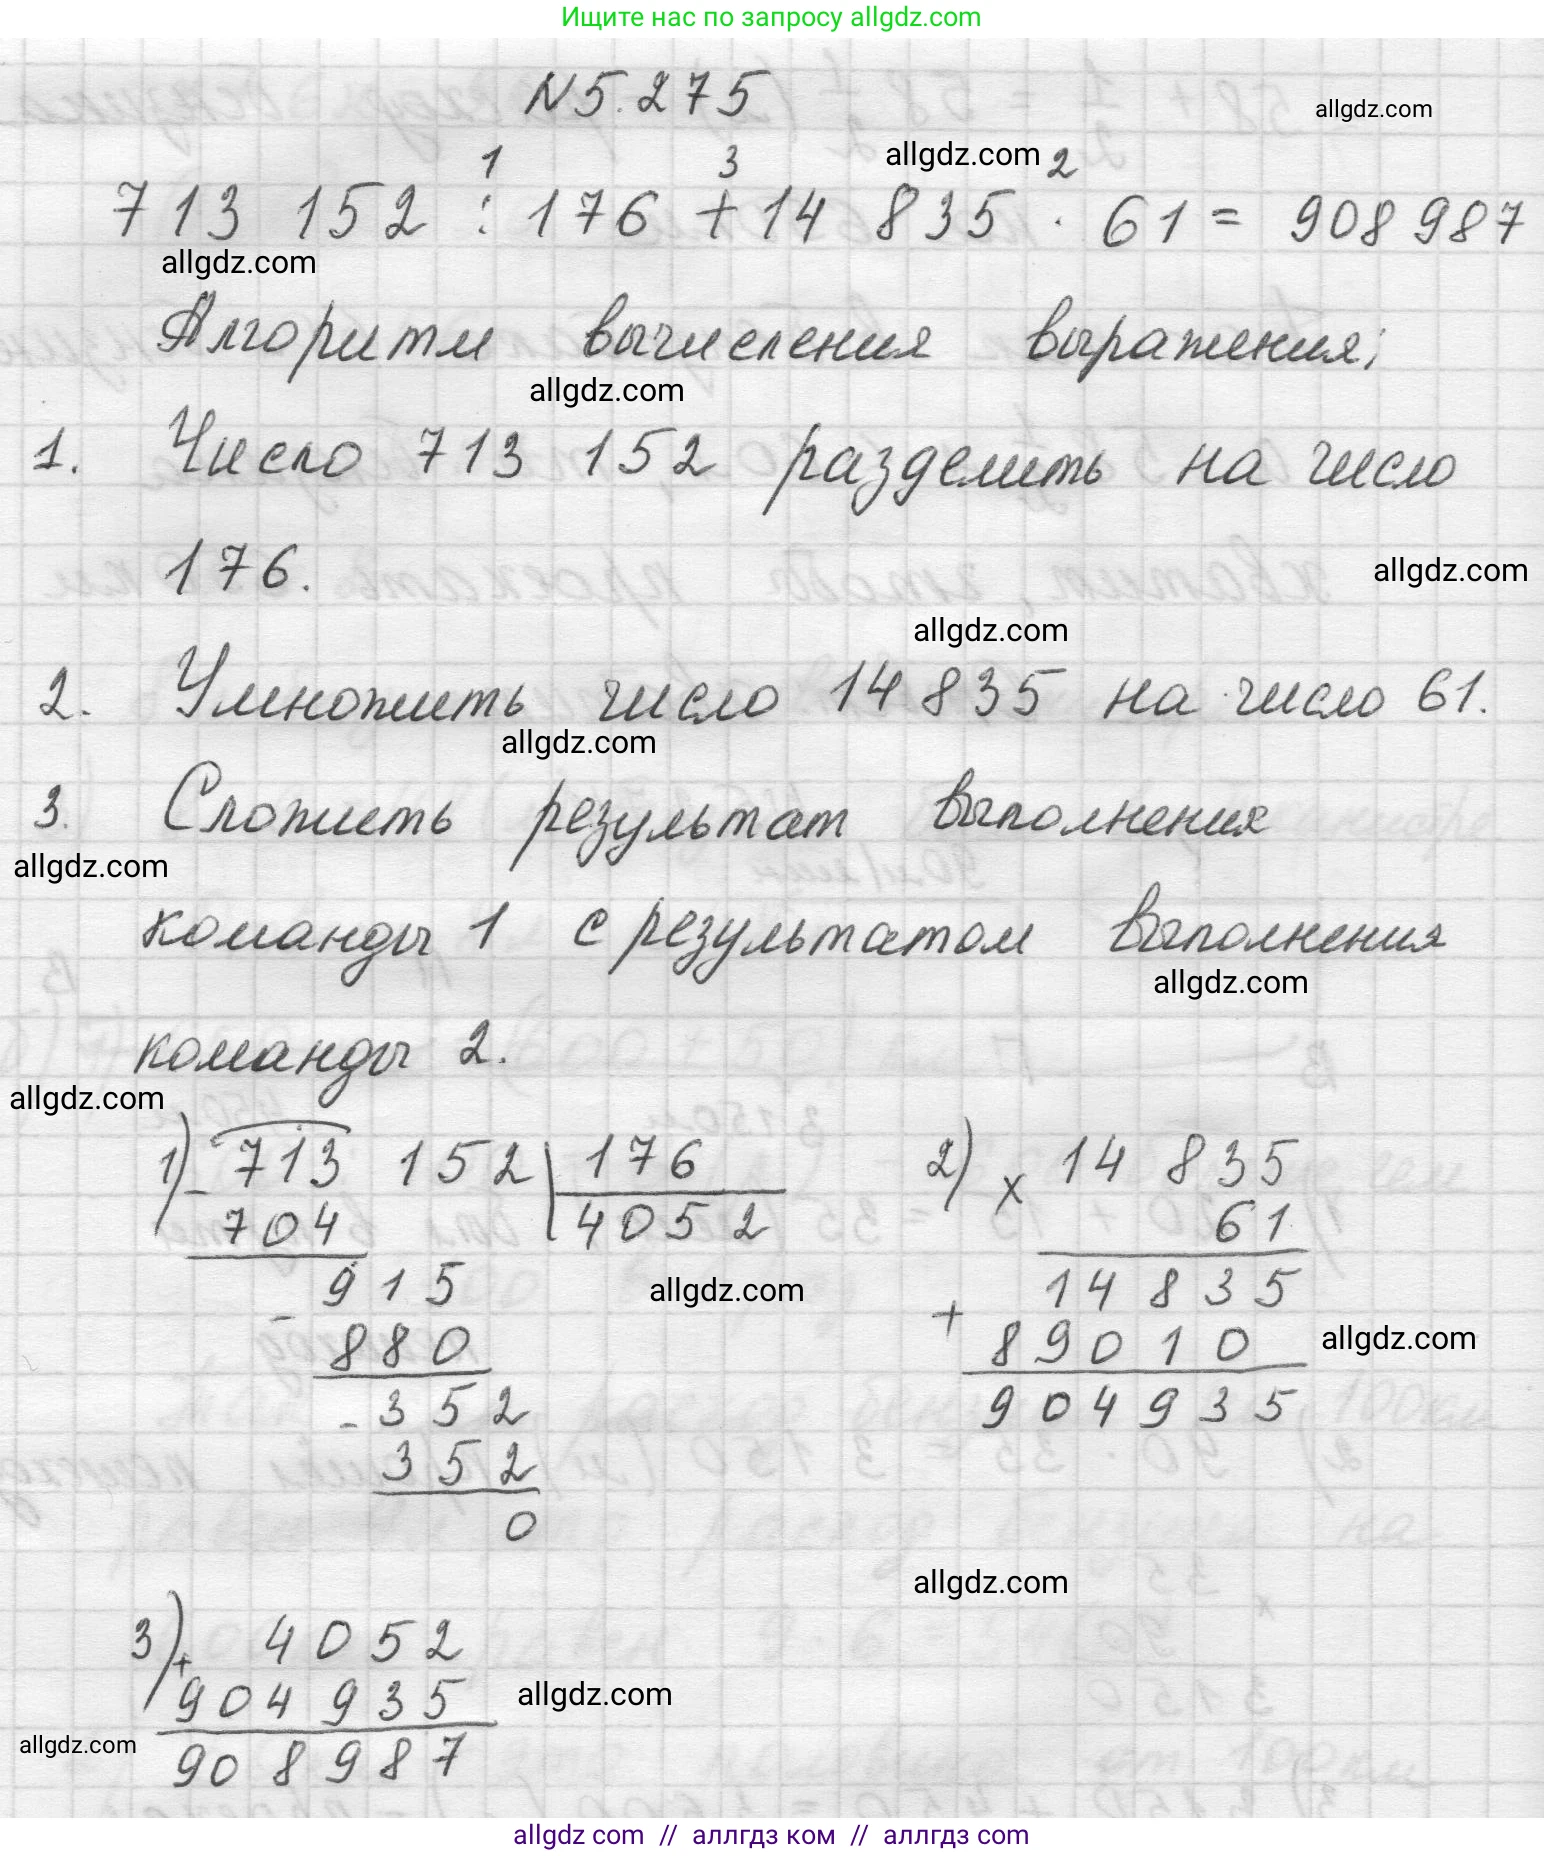 Ищите нас по запросу allgdz.com
N5.275
allgdz.com
1 3 allgdz.com 2
713 152 : 176 + 14 835 · 61 = 908 987
allgdz.com
Алгоритм вычисления выражения;
allgdz.com
1. Число 713 152 разделить на число
176.
allgdz.com
allgdz.com
2. Умножить число 14 835 на число 61.
allgdz.com
3. Сложить результат выполнения
allgdz.com
команды 1 с результатом выполнения
allgdz.com
команды 2.
allgdz.com
1) 713 152 176 2) x 14 835
- 704 4052 61
allgdz.com
915 14 835
- 880 + 89010 allgdz.com
- 352 904935
352
0
allgdz.com
3) + 4052
904 935 allgdz.com
allgdz.com
908 987
allgdz com // аллгдз ком // аллгдз com